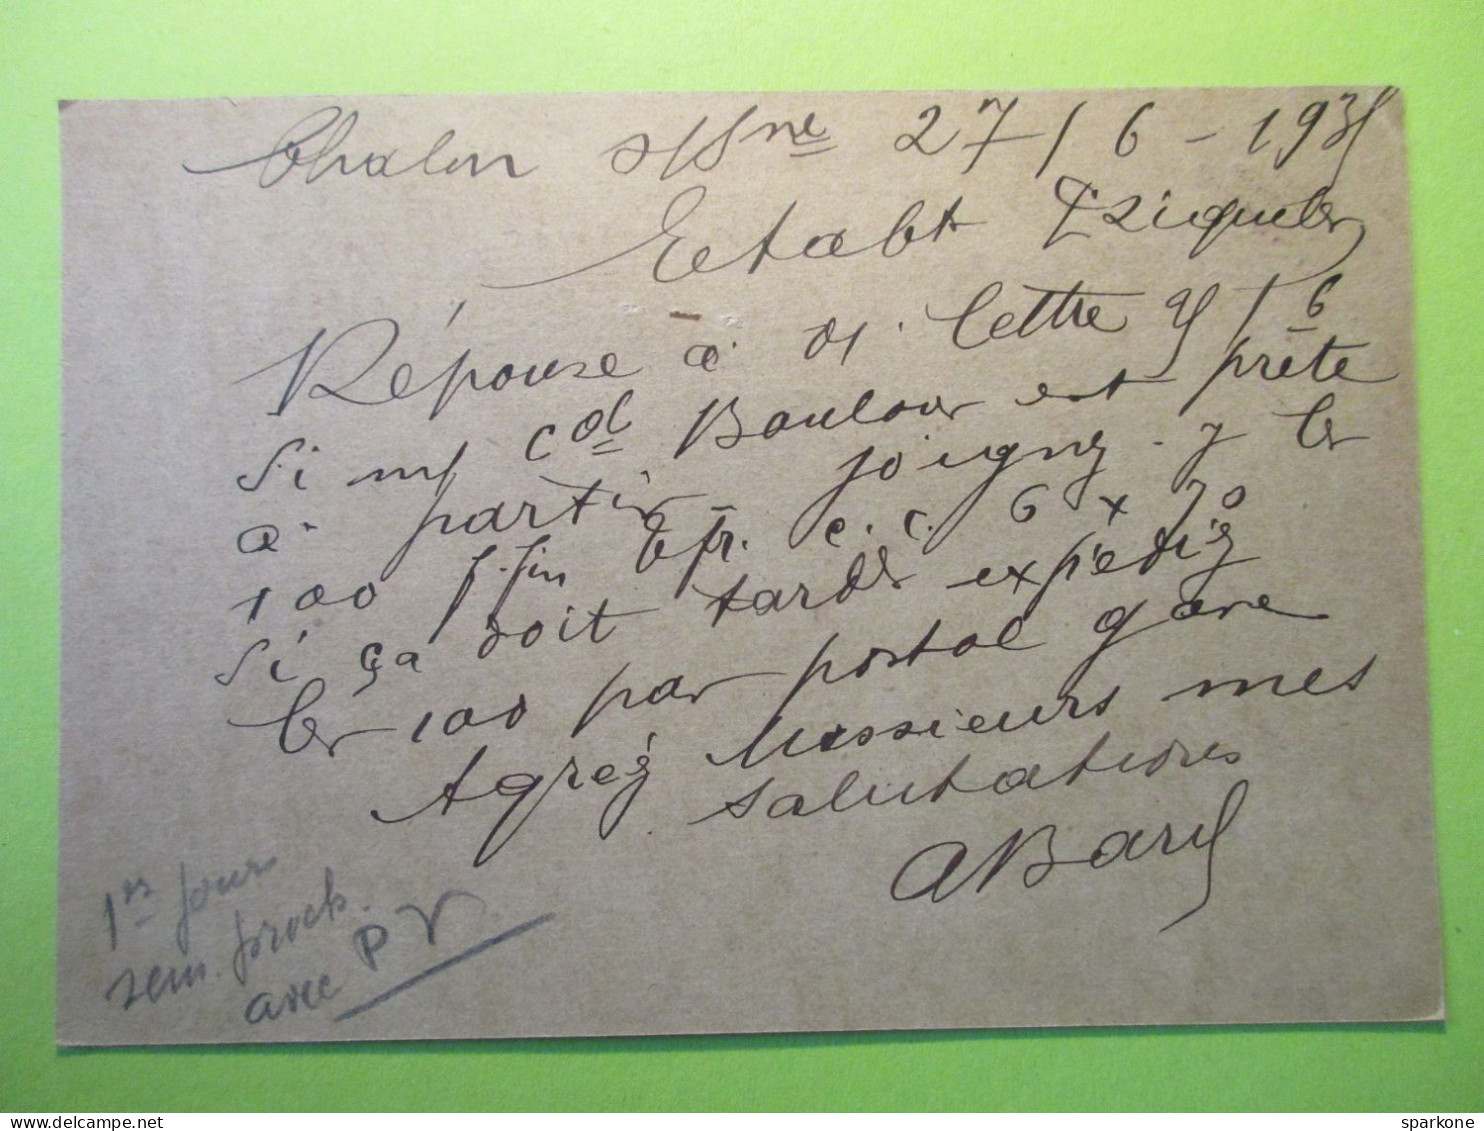 Chalon s/Sne 27/6-1935
Etabt Eziquels
Réponse à V. lettre 25/6
Si m/ cde Bouloir est prête
à partir Joigny - y les
100 f. fin c.c. 6 x 70
Si ça doit tarder expédiez
les 100 par postal gare
Agréez Messieurs mes
salutations
ABard
1ers jours
sem. proch.
avec PV
sparkone